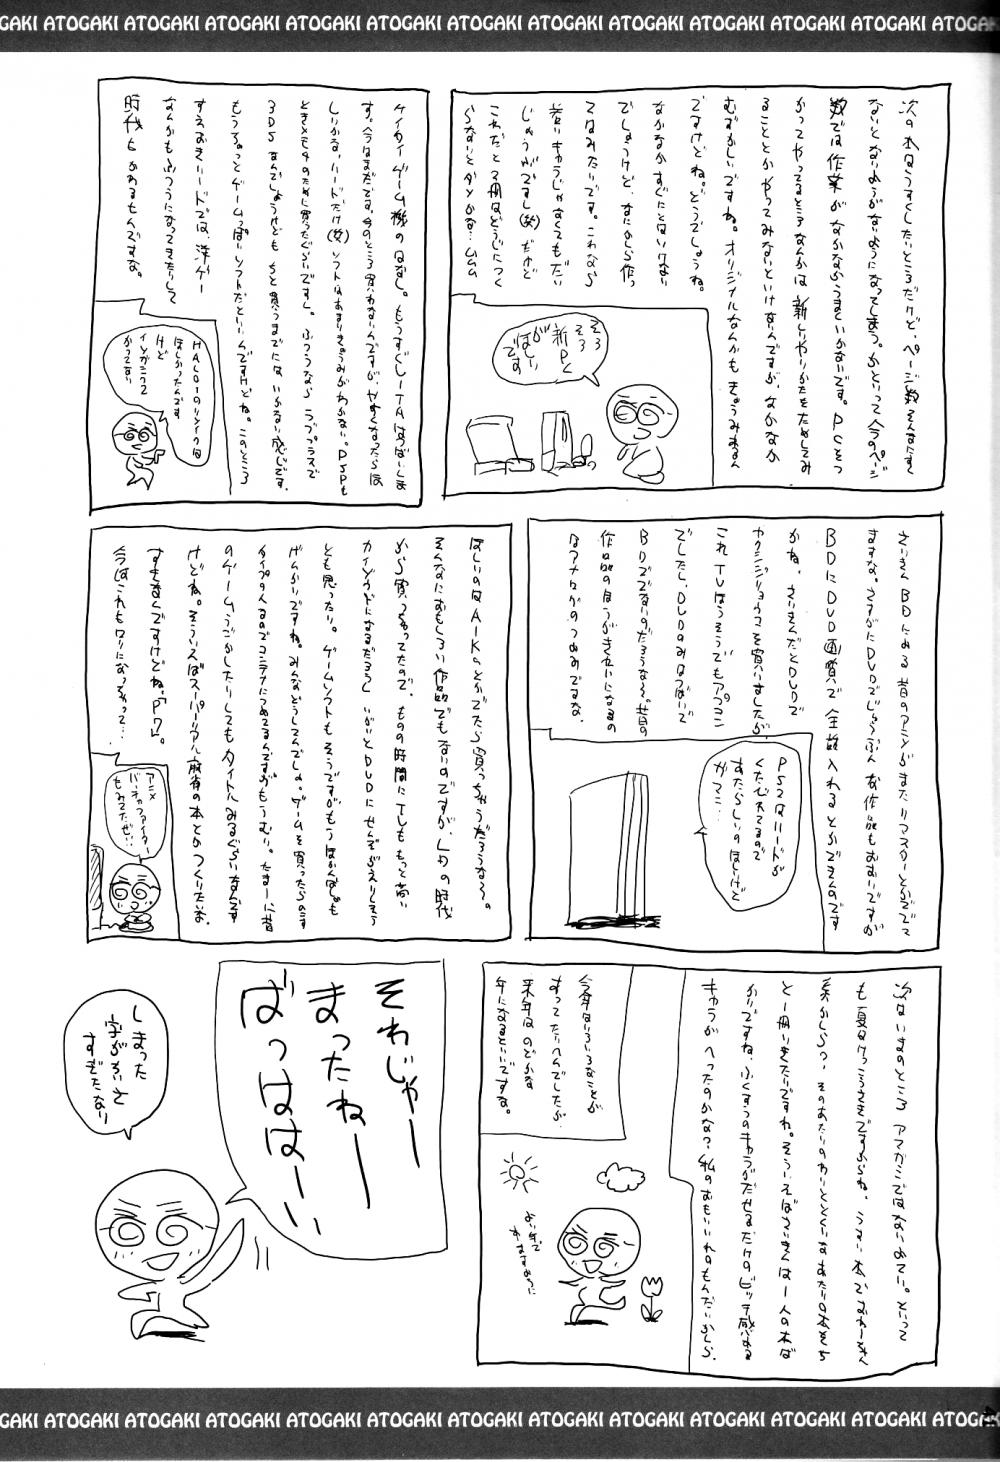 ATOGAKI ATOGAKI ATOGAKI ATOGAKI ATOGAKI ATOGAKI ATOGAKI ATOGAKI ATOGAKI
次の本はうすくしたいところだけど、ページ数そんなにすく
ないとなりようがないようになってしまう。かといって今のページ
数では作業がなかなかうまくいかないです。PCをつ
かってやってるところなんかは新しいやりかたをためしてみ
ることとかやってみないといけないんですが、なかなか
むずかしいですね。オリジナルなんかもきょうみあるん
ですけどね。どうでしょうね。
なかなかすぐにとはいけない
でしょうけど、なにかしら作っ
てはみたいです。これなら
若いキャラじゃなくてもだい
じょうぶですし(笑)だけど
これだと2冊はどうじにつく
らないとダメかな…ムムム
そろそろ
新PC
が
ほしい
です
ケイタイゲーム機のはなし。もうすぐVITAはつばいしま
す。今はまだです。今のところ買わないんですが、やすくなったらほ
しいかな、ハードだけ(笑)ソフトはあまりきょうみがわかない。PSPも
ときメモ4のために買ったぐらいですし。ふつうならラブプラスで
3DSなんでしょうけどもちと買うまでにはいかない感じです。
もうちょっとゲームっぽいソフトだといいんですけどね。このところ
すえおきハードでは、洋ゲー
なんかもふつうになってきたりして
時代もかわるもんですな。
HALO1のリメイク
ほしかったんです
けど
さいきんBDによる昔のアニメがまたリマスターとかででて
ますな。さすがにDVDでじゅうぶんな作品もおおいですが
BDにDVD画質で全話入れるとかできんのです
かね。さいきんだとDVDで
カクシジョウマを買いましたが
これTVほうそうでもアプコン
でしたし、DVDのみはつばいで
BDででないのだろうな〜。昔の
作品のほうがきれいになるの
はアナログのつよみですな。
PS2はハードが
くたびれてるので
あたらしいのほしけど
ガマン…
ほしいのはAIKのとかでたら買っちゃうだろうな〜。
そんなにおもしろい作品でもないのですが、LDの時代
から買っちゃってたので、ものの時間にしてももっと高い
カイゾウドになるだろうし いがいとDVDにせんぞがえりしそう
とも思ったり。ゲームソフトもそうですがもうほかんばしょも
げんかいですね。みんなどうしてんでしょ。ゲームを買ったらのこす
タイプの人なのでコンテナにつめてるんですがもうむり。たまーに昔
のゲームうごかしたりしてもタイトルみるぐらいなんです
けどね。そういえばスーパーリアル麻雀の本とかつくりたいな。
すきなんですけどね。「P7」。
今はこれもロリになっちゃって…
アニメ
バーチャファイター
もみてたぜい
次はいまのところアマガミではないみてー。といって
も夏けっこうさきですからね。うすい本でなわーきゃん
系かしらっ、そのあたりのわいととくいなあたりの本をち
と一冊いきたいですわ。そういえばさいきんは一人の本ば
かりですね、ふくすうのキャラがだせるだけのビッチ感ある
キャラがへったのかな?私のおもいいれのもんだいかしら。
今年はいろいろなことが
あってたいへんでしたが
来年はのどかな
年になるといいですな。
よい年で
ありますように
それじゃー
まったねー
ばっははーい
しまった
字がかいと
すぎたなり
ATOGAKI ATOGAKI ATOGAKI ATOGAKI ATOGAKI ATOGAKI ATOGAKI ATOGAKI ATOGAKI